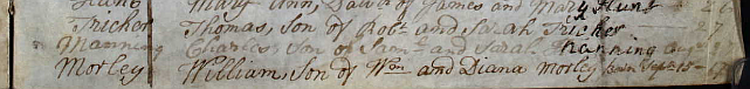 Hunt Mary Ann, Daur of James and Mary Hunt 26
Tricker Thomas, Son of Robt and Sarah Tricker 27
Manning Charles, Son of Saml and Sarah Manning Augt
Morley William, Son of Wm and Diana Morley born Sept 15